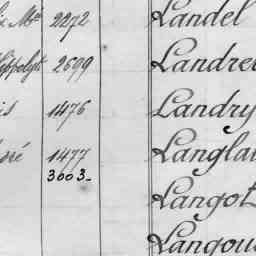 Mie 2272 Landel
Hippolyte 2699 Landre
is 1476 Landry
ré 1477 Langla
3003_
Langot
Langou